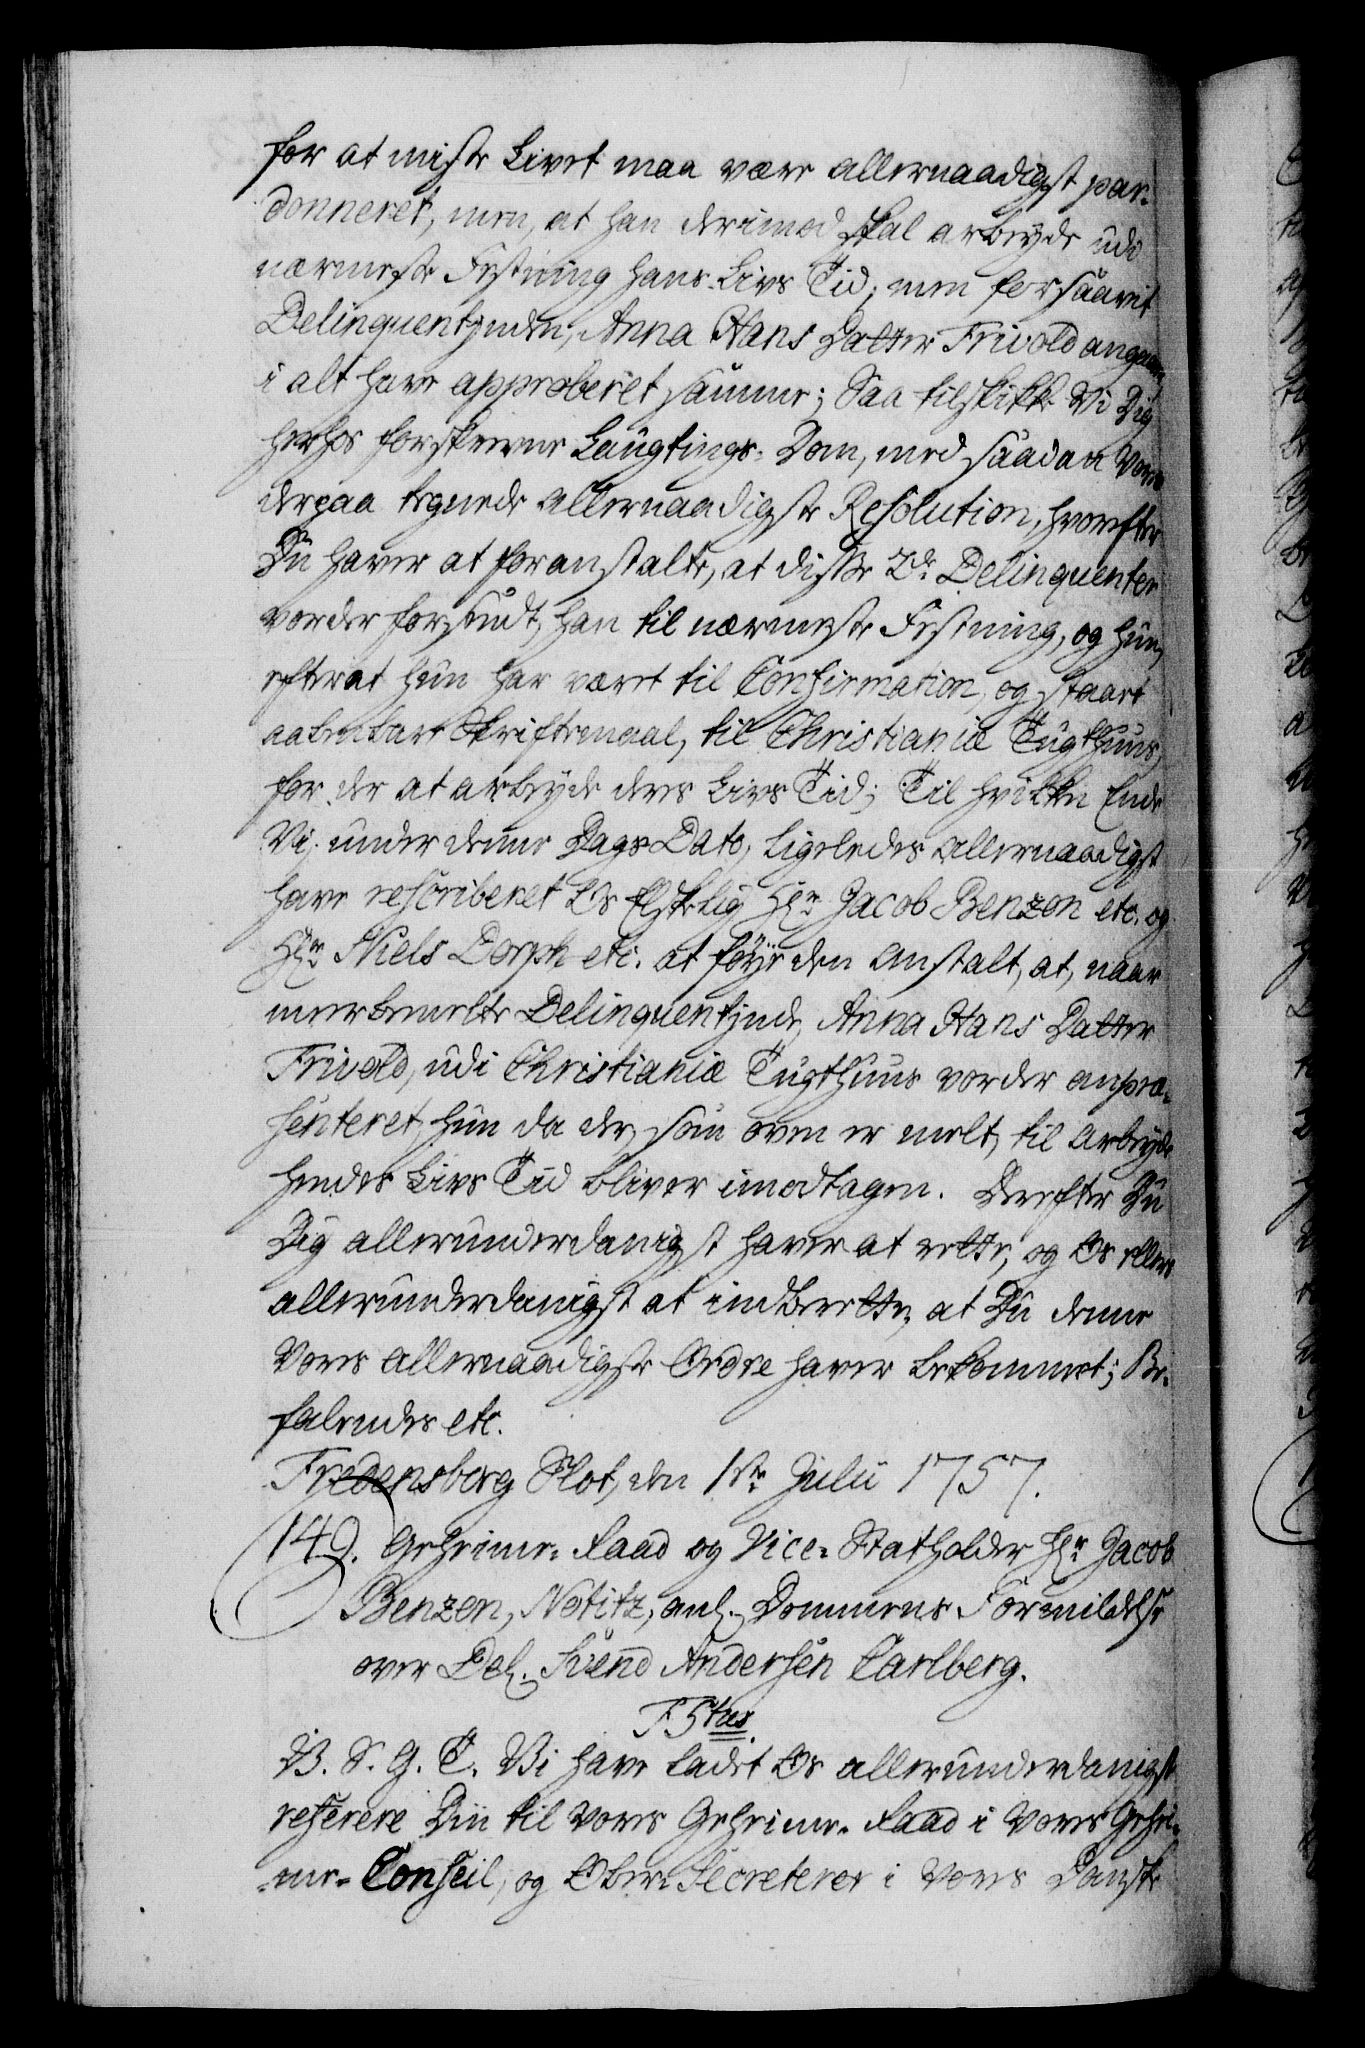 for at miste Livet maa være allernaadigst par-
donneret, men, at han derimod skal arbeyde udi
nærmeste Festning hans Livs Tid; men forsaavit
Delinquentinden, Anna Hans Datter Frivold angaaer,
i alt have approberet samme; Saa tilskikke Vi Dig
herhos forskrevne Laugtings-Dom, med saadan Vores
derpaa tegnede allernaadigste Resolution, hvorefter
Du haver at foranstalte, at disse 2de Delinquenter
vorder forsendt, han til nærmeste Festning, og hun,
efterat hun har været til Confirmation, og staaet
aabenbare Skriftemaal, til Christianiæ Tugthuus,
for der at arbeyde deres Livs Tid; Til hvilken Ende
Vi under denne Dags Dato, ligeledes allernaadigst
have rescriberet Os Elskelig Hr. Jacob Benzon etc. og
Hr. Niels Dorph etc. at føye den Anstalt, at, naar
meerbemelte Delinquentinde, Anna Hans Datter
Frivold, udi Christianiæ Tugthuus vorder anpræ-
senteret, hun da der, som oven er melt, til Arbeyde
hendes Livs Tid bliver imodtagen. Derefter Du
Dig allerunderdanigst haver at rette, og Os ellers
allerunderdanigst at indberette, at Du denne
Vores allernaadigste Ordre haver bekommet; Be-
falendes etc.
Fredensberg Slot, den 1ste Julii 1757.
149. Geheime-Raad og Vice-Statholder Hr. Jacob
Benzon, Notitz, anl. Dommens Formildelse
over Del. Svend Andersen Carlberg.
F 5tus.
V. S. G. T. Vi have ladet Os allerunderdanigst
referere Din til Vores Geheime-Raad i Vores Gehei-
me-Conseil, og Ober-Secreterer i Vores Danske